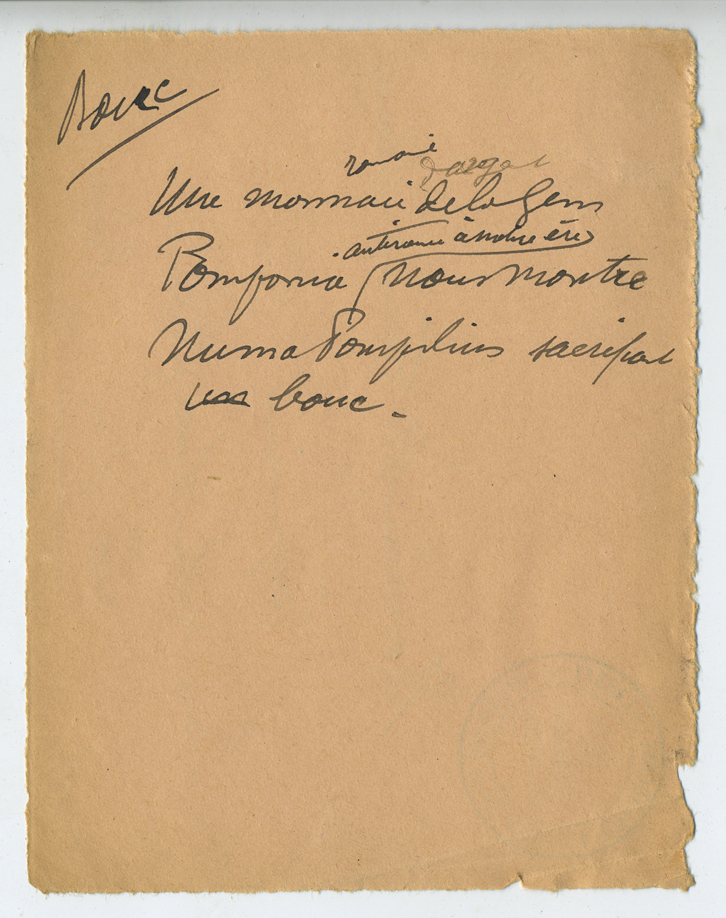 Bouc
romaine d'argent
Une monnaie de la Gens
antérieure à notre ère
Pomponia nous montre
Numa Pompilius sacrifiant
un bouc.